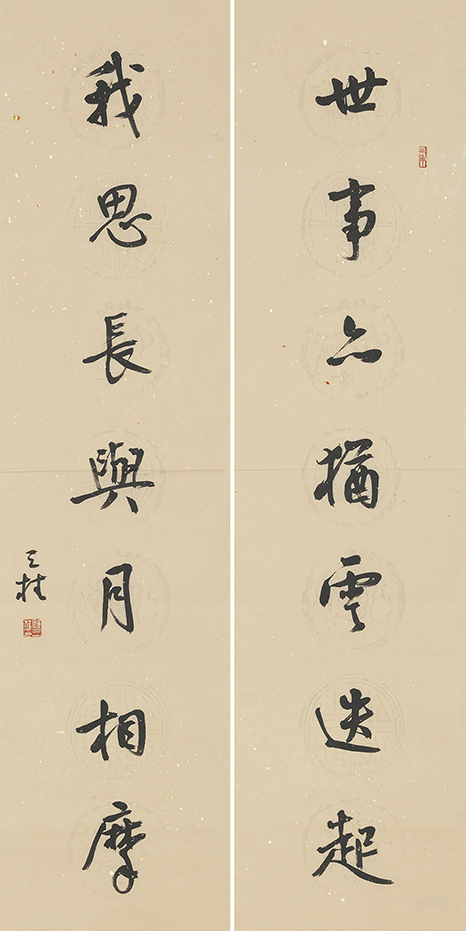 世事亦猶雲迭起
我思長與月相摩
天桂